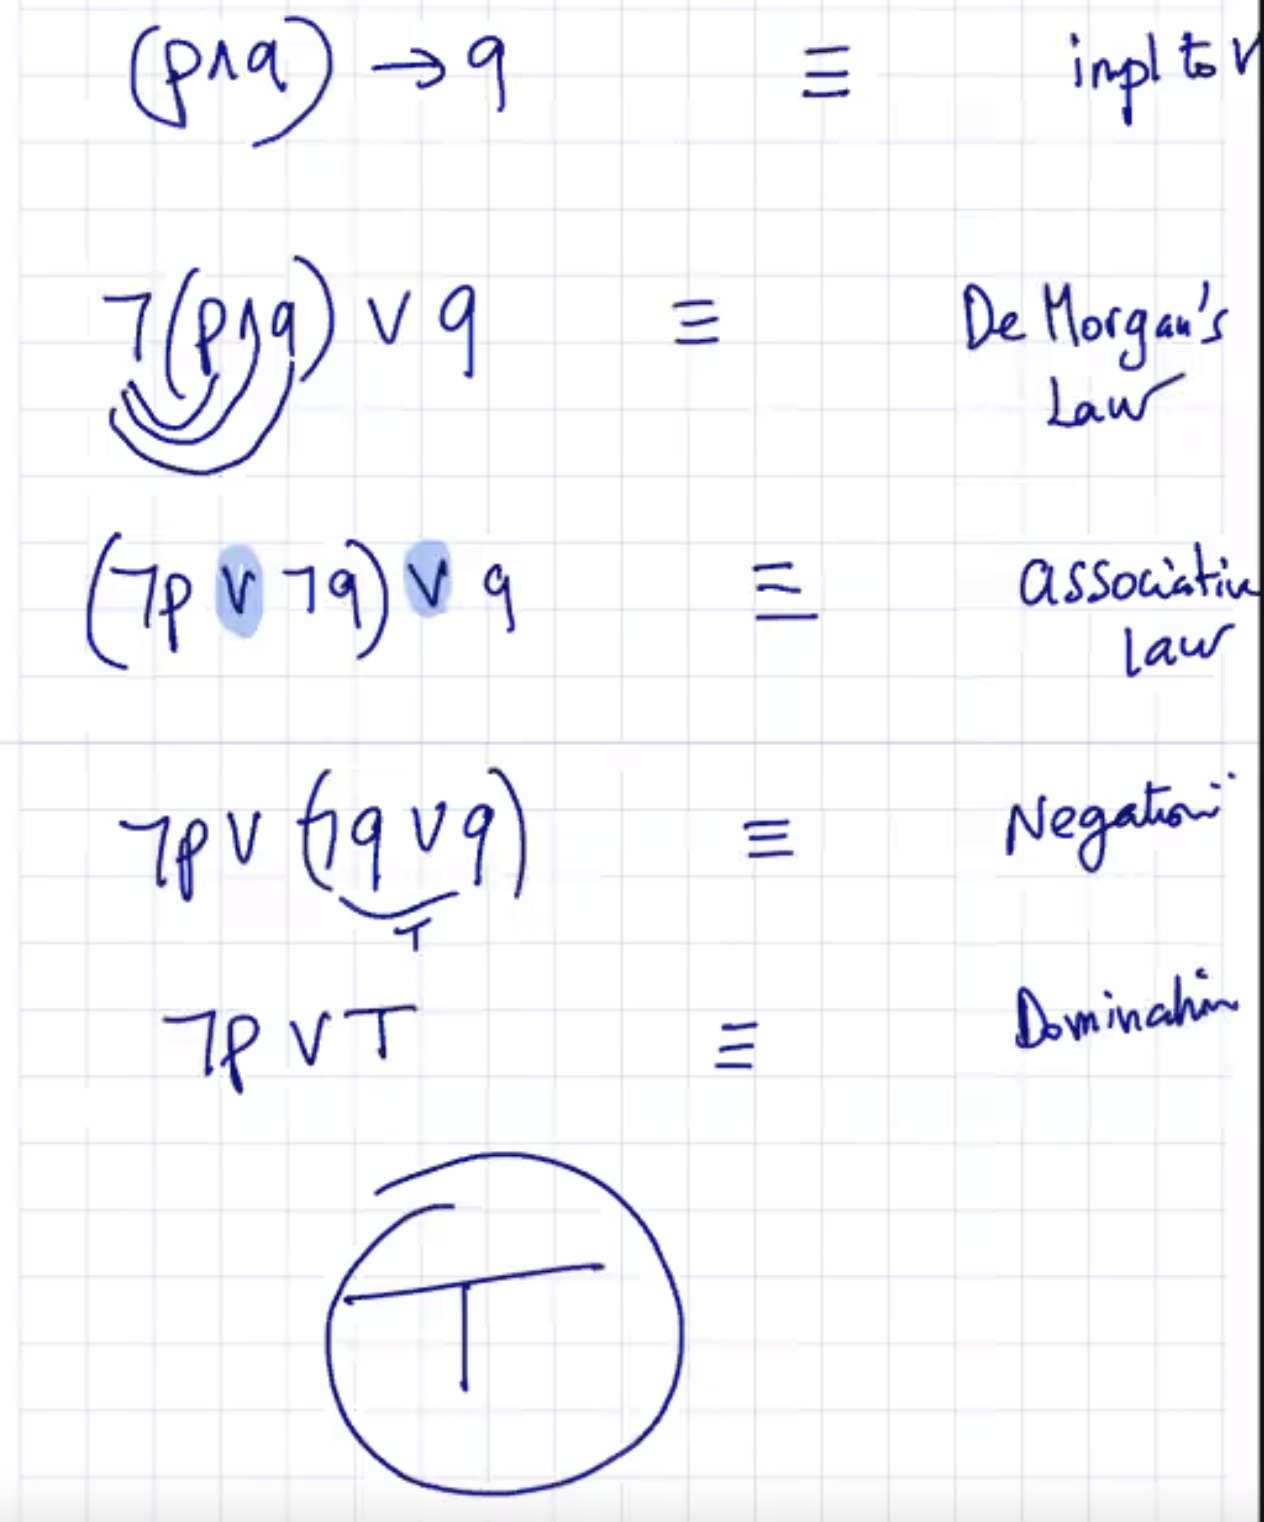 (p∧q) → q ≡ impl to V
¬(p∧q) ∨ q ≡ De Morgan's
Law
(¬p ∨ ¬q) ∨ q ≡ associative
law
¬p ∨ (¬q ∨ q) ≡ Negation
T
¬p ∨ T ≡ Domination
T